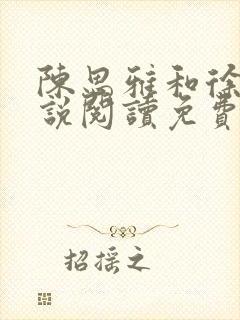 陳思雅和徐
說閱讀免費
招搖之